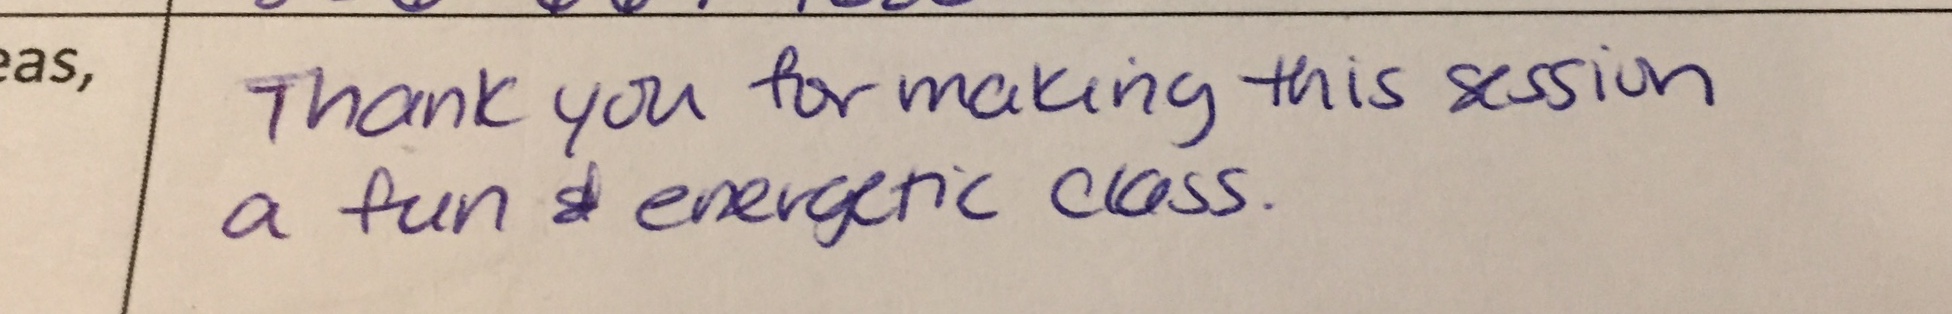 eas,
Thank you for making this session
a fun & energetic class.